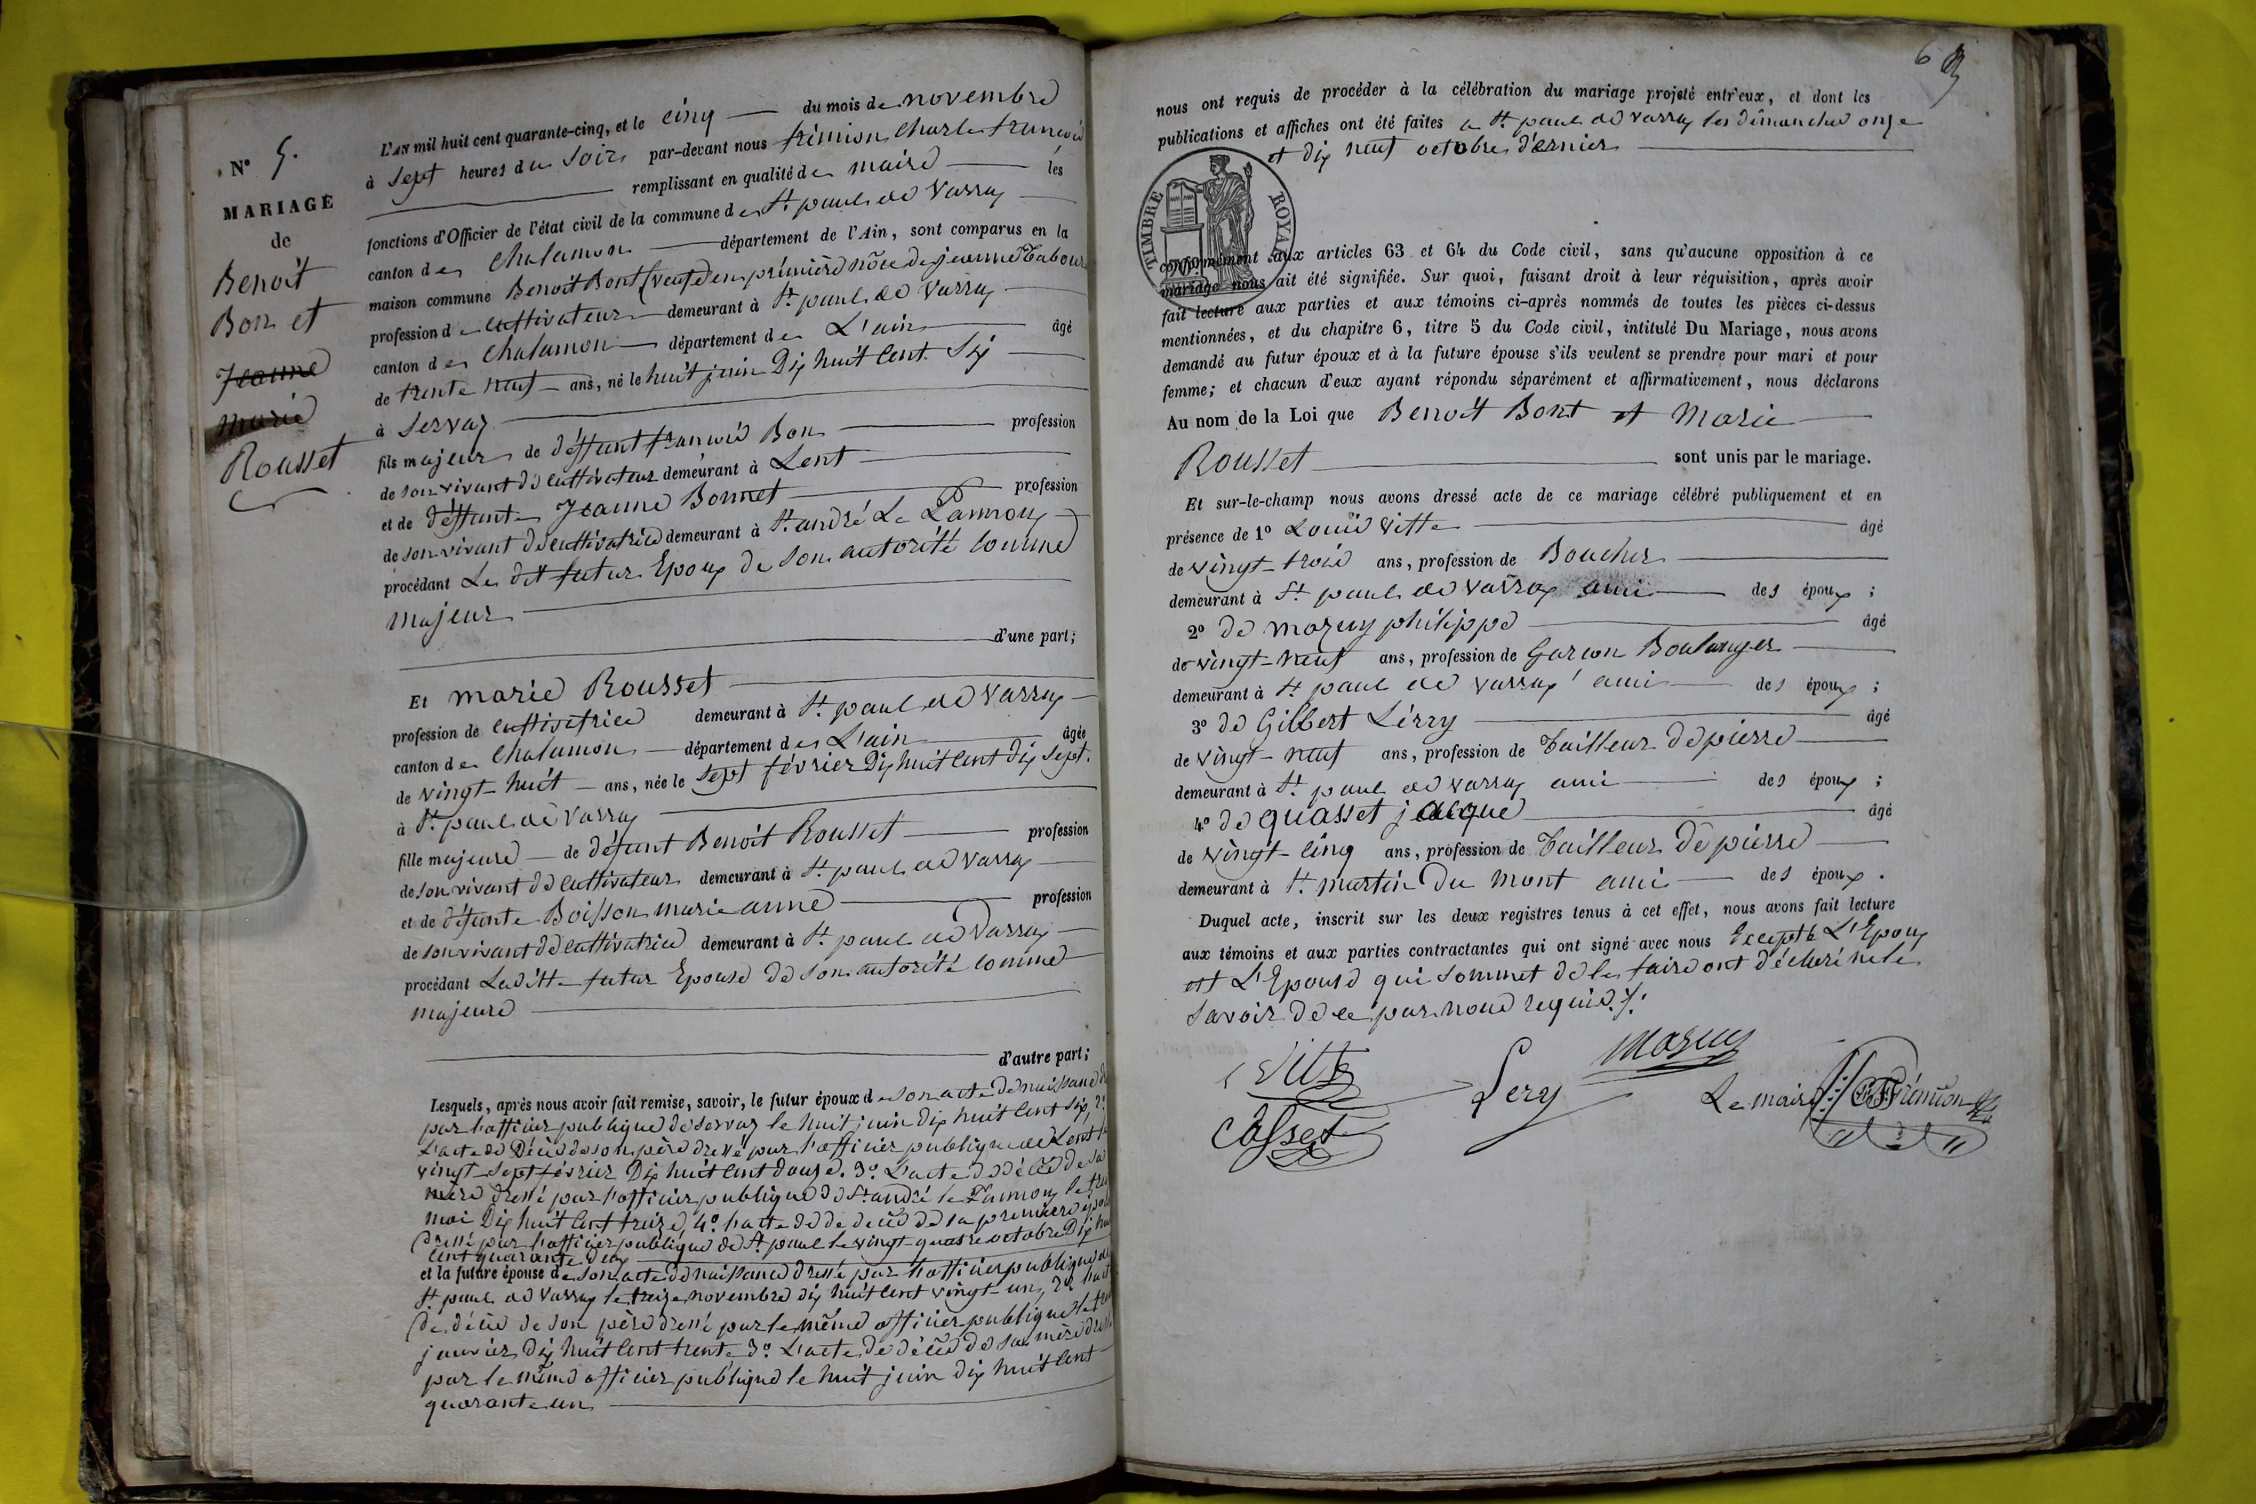 N° 5.
MARIAGE
de
Benoit
Bon et
Jeanne
marie
Rousset
L'AN mil huit cent quarante-cinq, et le cinq du mois de novembre
à sept heures du soir par-devant nous frémion Charle francois
remplissant en qualité de maire les
fonctions d'Officier de l'état civil de la commune de St paul de Varray
canton de Chalamon département de l'Ain, sont comparus en la
maison commune Benoit Bont (veuf en première nôce de jeanne
profession de cultivateur demeurant à St paul de Varray
canton de Chalamon département de L'ain âgé
de trente neuf ans, né le huit juin Dix huit Cent Six
à Servaz
fils majeur de déffunt francois Bon profession
de son vivant de cultivateur demeurant à Lent
et de déffunte Jeanne Bonnet profession
de son vivant de cultivatrice demeurant à St andré Le Pannoux
procédant Le dit futur Epoux de son autorité comme
majeur
d'une part;
Et marie Rousset
profession de cultivatrice demeurant à St paul de Varray
canton de Chalamon département de L'ain âgée
de vingt-huit ans, née le sept février Dix huit Cent dix sept.
à St paul de Varray
fille majeure de défunt Benoit Rousset profession
de son vivant de cultivateur demeurant à St paul de Varray
et de défunte Boisson marie anne profession
de son vivant de cultivatrice demeurant à St paul de Varray
procédant Laditte futur Epouse de son autorité comme
majeure
d'autre part;
Lesquels, après nous avoir fait remise, savoir, le futur époux de son acte de naissance
par l'officier publique de servaz le huit juin dix huit Cent Six, 2°
L'acte de Décès de son père dressé par l'officier publique de Lent
vingt-sept février Dix huit Cent douze. 3° L'acte de décès de sa
mère dressé par l'officier publique de St andré le Pannoux le
mai Dix huit Cent treize, 4° l'acte de decès de sa première
dressé par l'officier publique de St paul le vingt-quatre octobre Dix
Cent quarante deux
et la future épouse de son acte de naissance dressé par l'officier publique
St paul de Varray le treize novembre dix huit Cent vingt-un, 2°
de décès de son père dressé par le même officier publique le
janvier Dix huit Cent trente 3° L'acte de décès de sa mère
par le même officier publique le huit juin dix huit Cent
quarante un
6
nous ont requis de procéder à la célébration du mariage projeté entr'eux, et dont les
publications et affiches ont été faites a St paul de Varray les dimanches onze
et dix neuf octobre dernier
TIMBRE ROYAL
conformément aux articles 63 et 64 du Code civil, sans qu'aucune opposition à ce
mariage nous ait été signifiée. Sur quoi, faisant droit à leur réquisition, après avoir
fait lecture aux parties et aux témoins ci-après nommés de toutes les pièces ci-dessus
mentionnées, et du chapitre 6, titre 5 du Code civil, intitulé Du Mariage, nous avons
demandé au futur époux et à la future épouse s'ils veulent se prendre pour mari et pour
femme; et chacun d'eux ayant répondu séparément et affirmativement, nous déclarons
Au nom de la Loi que Benoit Bont et Marie
Rousset sont unis par le mariage.
Et sur-le-champ nous avons dressé acte de ce mariage célébré publiquement et en
présence de 1° Louis Vitte âgé
de vingt-trois ans, profession de Boucher
demeurant à St paul de Varray ami des époux;
2° de mozuy philippe âgé
de vingt-neuf ans, profession de Garcon Boulanger
demeurant à St paul de Varray ami des époux;
3° de Gilbert Lérry âgé
de vingt-neuf ans, profession de tailleur de pierre
demeurant à St paul de Varray ami des époux;
4° de quasset jacque âgé
de vingt-cinq ans, profession de tailleur de pierre
demeurant à St martin Du mont ami des époux.
Duquel acte, inscrit sur les deux registres tenus à cet effet, nous avons fait lecture
aux témoins et aux parties contractantes qui ont signé avec nous Excepté L'Epoux
et L'Epouse qui sommet de le faire ont déclaré ne le
savoir de ce par nous requis.
Vitte Lery Mozuy
Casset Le maire Frémion